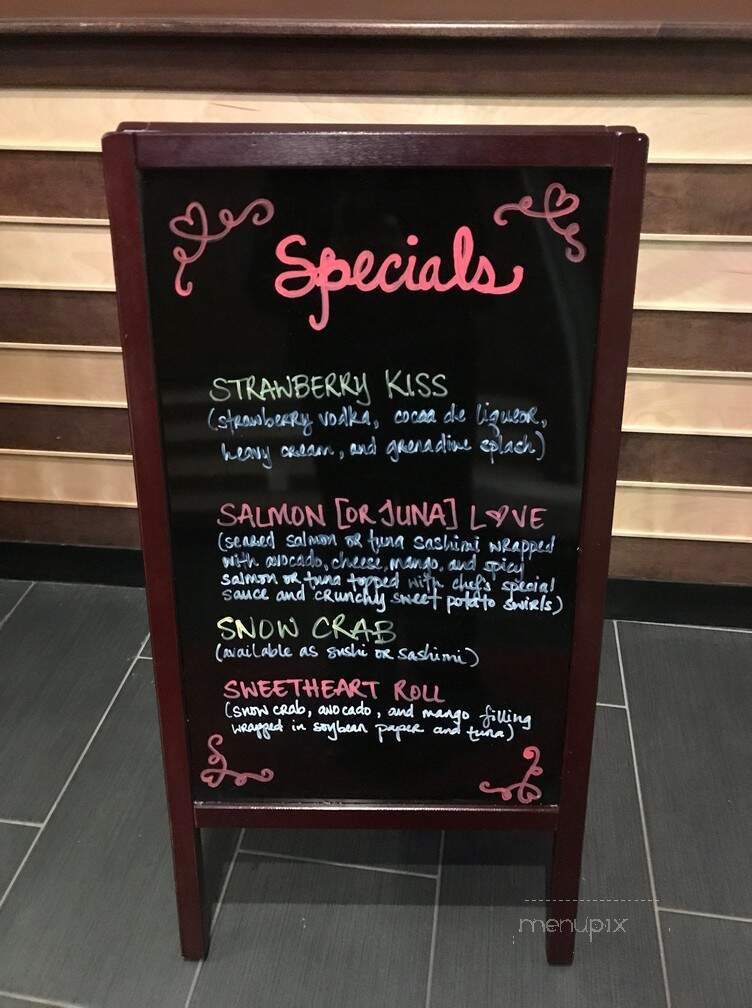 Specials
STRAWBERRY KISS
(strawberry vodka, cocoa de liqueor,
heavy cream, and grenadine splash)
SALMON [OR TUNA] LOVE
(seared salmon or tuna sashimi wrapped
with avocado, cheese, mango, and spicy
salmon or tuna topped with chef's special
sauce and crunchy sweet potato swirls)
SNOW CRAB
(available as sushi or sashimi)
SWEETHEART ROLL
(snow crab, avocado, and mango filling
wrapped in soybean paper and tuna)
menupix